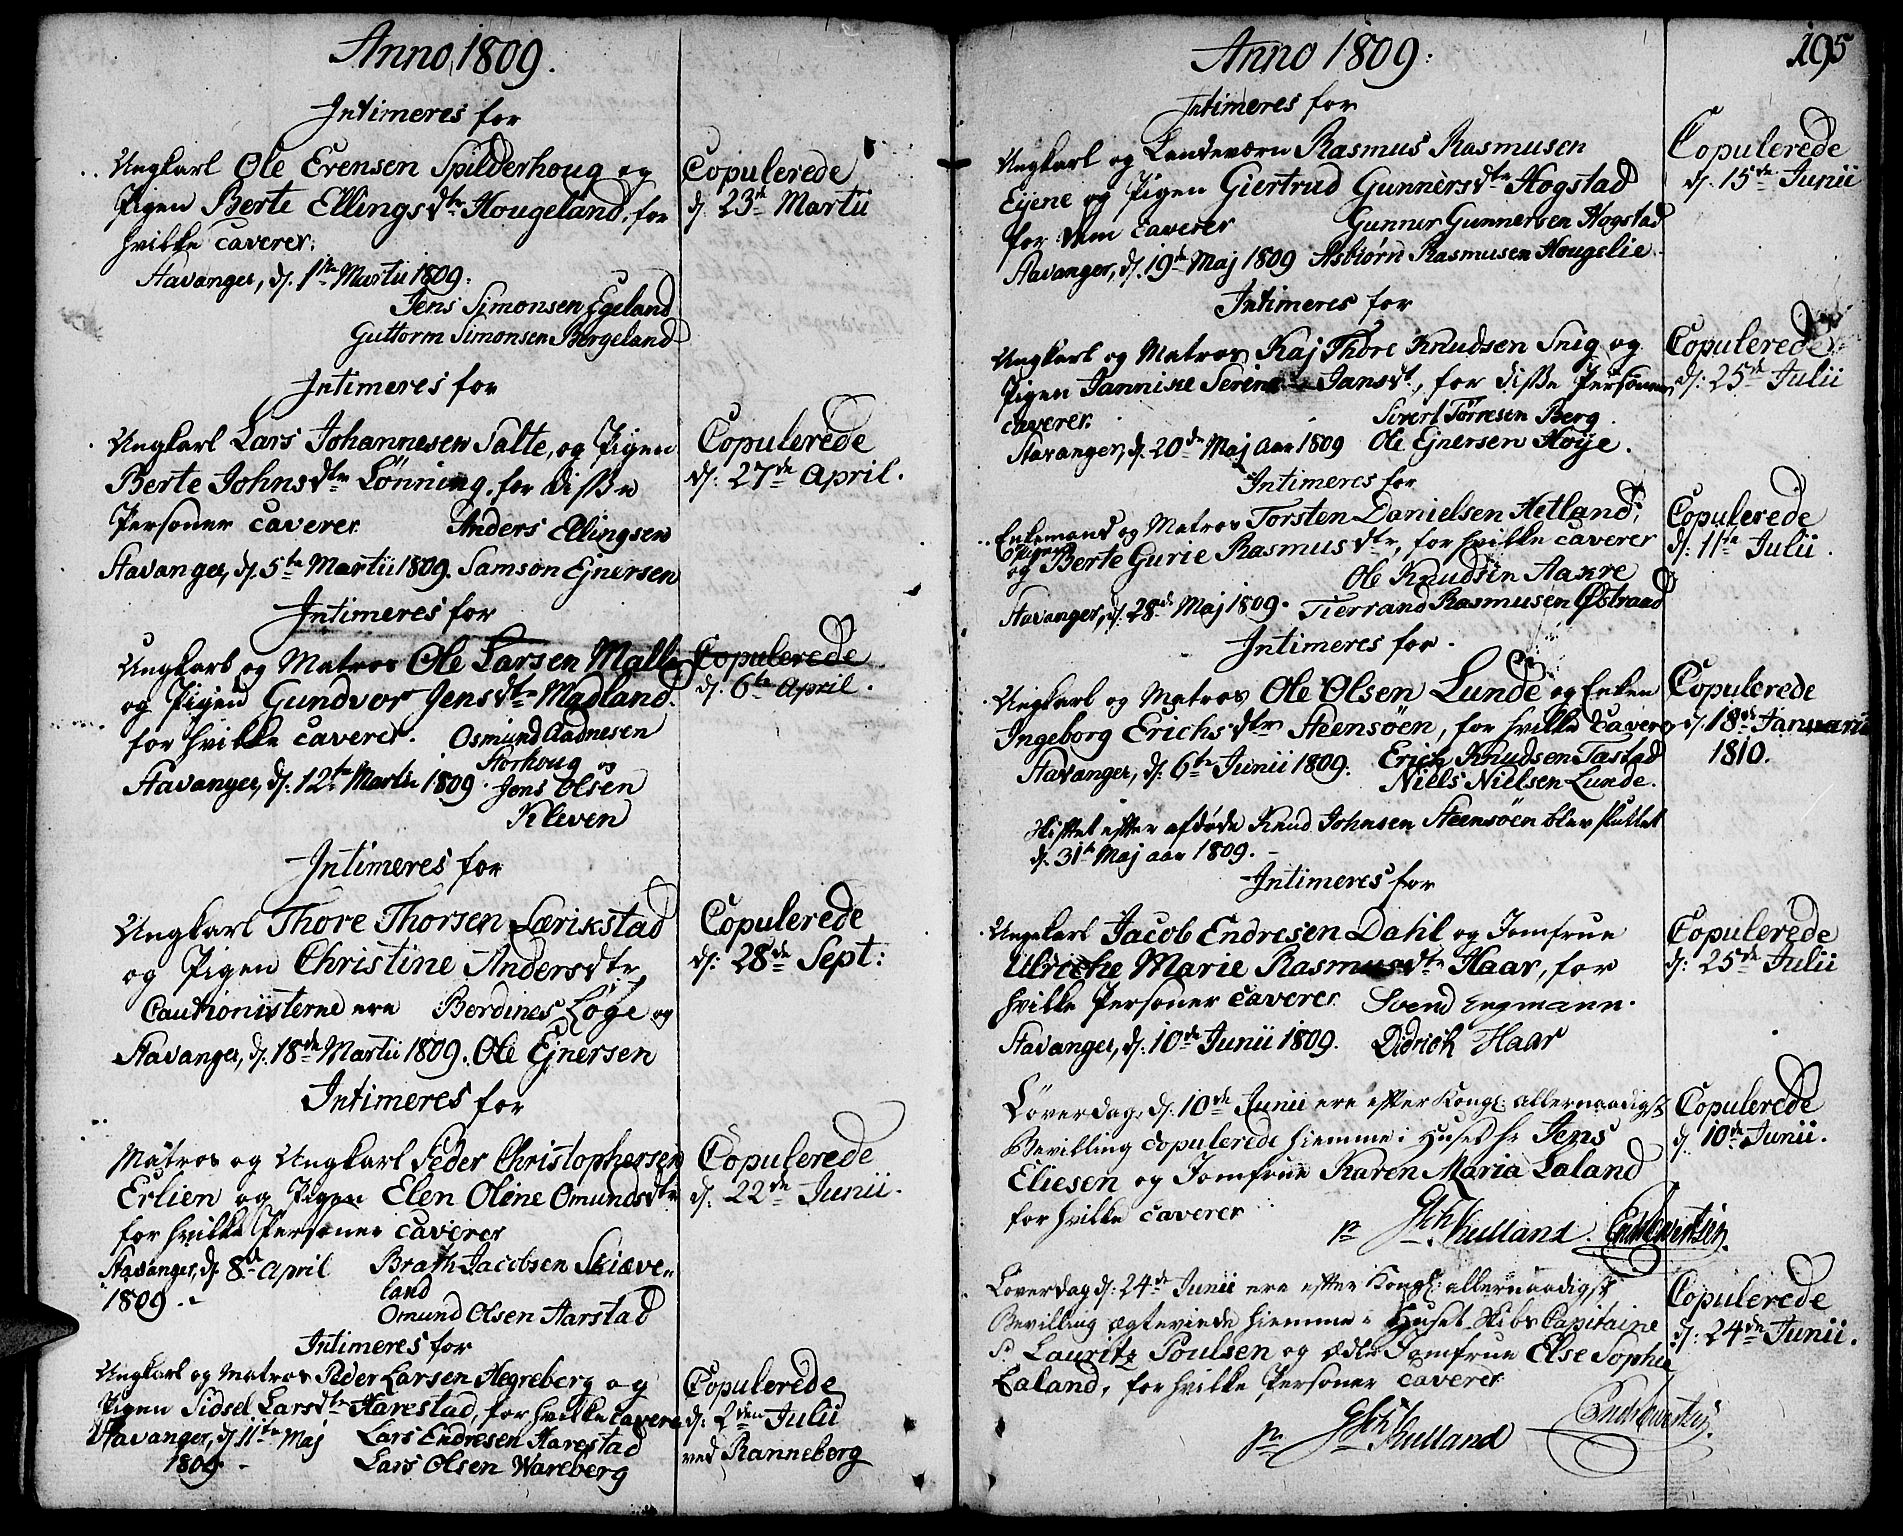 Anno 1809.
Intimeres for
Ungkarl Ole Evensen Spilderhoug og
Pigen Berte Ellingsdtr Hougeland, for
hvilke caverer:
Stavanger, d. 1te Martii 1809.
Jens Simonsen Egeland
Guttorm Simonsen Bergeland
Copulerede
d. 23de Martii
Intimeres for
Ungkarl Lars Johannesen Salte, og Pigen
Berte Johnsdtr Lønning, for disse
Personer caverer Anders Ellingsen
Stavanger, d. 5te Martii 1809. Samson Ejnersen
Copulerede
d. 27de April.
Intimeres for
Ungkarl og Matros Ole Larsen Malle
og Pigen Gundvor Jensdtr Madland.
for hvilke caverer. Osmund Aadnesen
Storhoug og
Stavanger, d. 12te Martii 1809. Jens Olsen
Kleven
Copulerede
d. 6te April.
Intimeres for
Ungkarl Thore Thorsen Særikstad
og Pigen Christine Andersdtr,
Cautionisterne ere Berdines Løge og
Stavanger, d. 18de Martii 1809. Ole Ejnersen
Copulerede
d. 28de Sept:
Intimeres for
Matros og Ungkarl Peder Christophersen
Erlien og Pigen Elen Oline Omundsdtr
for hvilke Personer caverer
Stavanger, d. 8de April Brath Jacobsen Skiæve-
1809. land
Omund Olsen Aarstad
Copulerede
d. 22de Junii.
Intimeres for
Ungkarl og Matros Peder Larsen Hegreberg og
Pigen Sidsel Larsdtr Harestad, for hvilke caverer
Stavanger, d. 11te Maj Lars Endresen Harestad
1809. Lars Olsen Wareberg
Copulerede
d. 2den Julii
ved Ranneberg
Anno 1809:
195
Intimeres for
Ungkarl og Landeværn Rasmus Rasmusen
Eijene og Pigen Giertrud Gunnersdtr Hogstad
for dem caverer Gunner Gunnersen Hogstad
Stavanger, d. 19de Maj 1809 Asbiørn Rasmusen Hougslie.
Copulerede
d. 15de Junii
Intimeres for
Ungkarl og Matros Kaj Thore Knudsen Snig og
Pigen Jannike Serine Jansdt., for disse Personer
caverer. Sivert Tørresen Berg
Stavanger, d. 20de Maj aar 1809 Ole Ejnersen Høije.
Copulerede
d: 25de Julii
Intimeres for
Enkemand og Matros Torsten Danielsen Hetland,
og Pigen Berte Gurie Rasmusdtr, for hvilke caverer
Ole Knudsen Aakre
Stavanger, d. 28de Maj 1809. Tierrand Rasmusen Østraad
Copulerede
d: 11te Julii.
Intimeres for.
Ungkarl og Matros Ole Olsen Lunde og Enken
Ingeborg Erichsdtr Steensøen, for hvilke caverer
Stavanger, d: 6te Junii 1809. Erich Knudsen Tastad
Niels Nielsen Lunde.
Skiftet efter afdøde Knud Johnsen Steensøen blev sluttet
d. 31te Maj aar 1809.
Copulerede
d. 18de Januarii
1810.
Intimeres for
Ungkarl Jacob Endresen Dahl og Jomfrue
Ulriche Marie Rasmusdtr Haar, for
hvilke Personer caverer Svend Engmann.
Stavanger, d: 10de Junii 1809. Didrich Haar
Copulerede
d: 25de Julii
Løverdag, d: 10de Junii ere efter Kongl: allernaadigst
Bevilling copulerede hiemme i Huset hr Jens
Eliesen og Jomfrue Karen Maria Laland
for hvilke caverer
Kielland.
Copulerede
d. 10de Junii.
Løverdag d: 24de Junii ere efter Kongl: allernaadigst
Bevilling ægteviede hiemme i Huset Skibs Capitaine
Lauritz Poulsen og ædle Jomfrue Else Sophie
Laland, for hvilke Personer caverer
Kielland
Copulerede
d: 24de Junii.